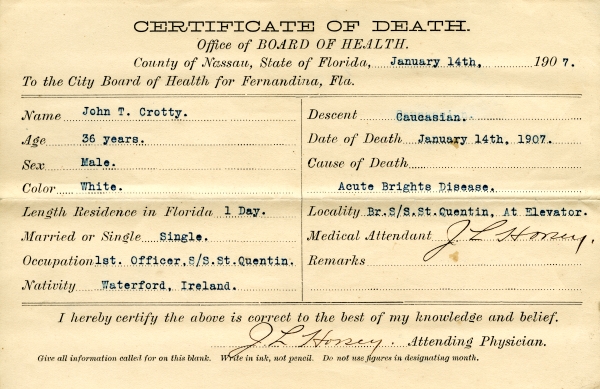 CERTIFICATE OF DEATH.
Office of BOARD OF HEALTH.
County of Nassau, State of Florida, January 14th, 1907.
To the City Board of Health for Fernandina, Fla.
Name John T. Crotty.
Age 36 years.
Sex Male.
Color White.
Length Residence in Florida 1 Day.
Married or Single Single.
Occupation 1st. Officer, S/S.St.Quentin.
Nativity Waterford, Ireland.
Descent Caucasian.
Date of Death January 14th, 1907.
Cause of Death
Acute Brights Disease.
Locality Br.S/S.St.Quentin, At Elevator.
Medical Attendant J L Horsey.
Remarks
I hereby certify the above is correct to the best of my knowledge and belief.
J L Horsey. Attending Physician.
Give all information called for on this blank. Write in ink, not pencil. Do not use figures in designating month.